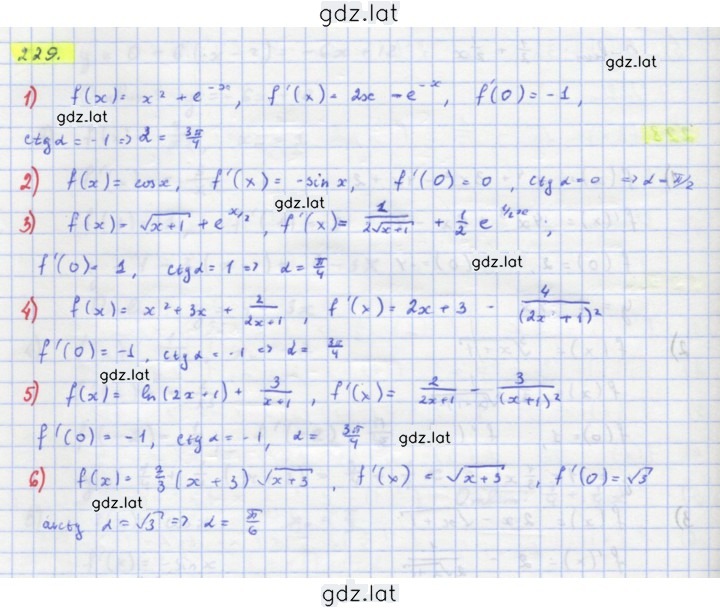 gdz.lat
229.
gdz.lat
1) f(x) = x² + e^{-x}, f'(x) = 2x - e^{-x}, f'(0) = -1,
gdz.lat
ctg α = -1 => α = 3π/4
2) f(x) = cos x, f'(x) = -sin x, f'(0) = 0, ctg α = 0 => α = π/2
gdz.lat
3) f(x) = √(x+1) + e^{x/2}, f'(x) = 1/(2√(x+1)) + 1/2 e^{1/2x};
f'(0) = 1, ctg α = 1 => α = π/4
gdz.lat
4) f(x) = x² + 3x + 2/(2x+1), f'(x) = 2x + 3 - 4/(2x+1)²
f'(0) = -1, ctg α = -1 => α = 3π/4
gdz.lat
5) f(x) = ln(2x+1) + 3/(x+1), f'(x) = 2/(2x+1) - 3/(x+1)²
f'(0) = -1, ctg α = -1, α = 3π/4
gdz.lat
6) f(x) = 2/3 (x+3) √(x+3), f'(x) = √(x+3), f'(0) = √3
gdz.lat
arcctg α = √3 => α = π/6
gdz.lat